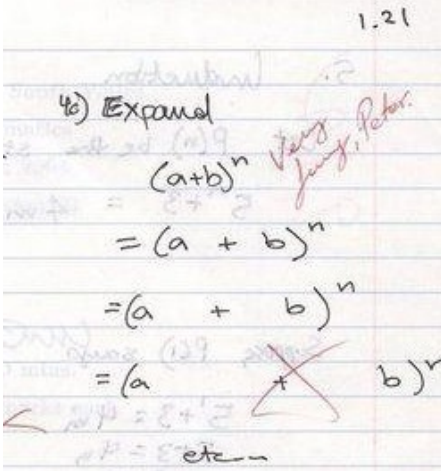 1.21
4c) Expand
Very funny, Peter.
(a+b)ⁿ
= (a + b)ⁿ
=(a + b)ⁿ
= (a + b)ⁿ
etc...